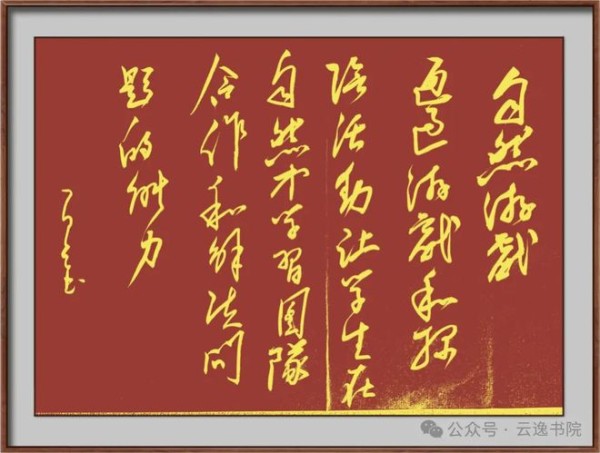 自然游戏
通过游戏和探
险活动让学生在
自然中学习团隊
合作和解决问
题的能力
公众号·云逸书院